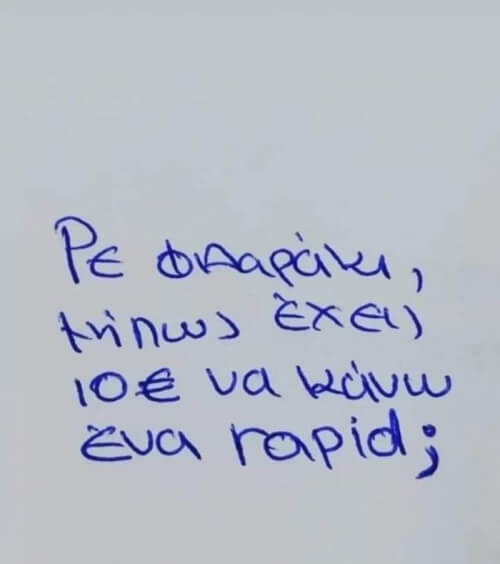 Ρε φιλαράκι,
μήπως έχεις
10€ να κάνω
ένα rapid;